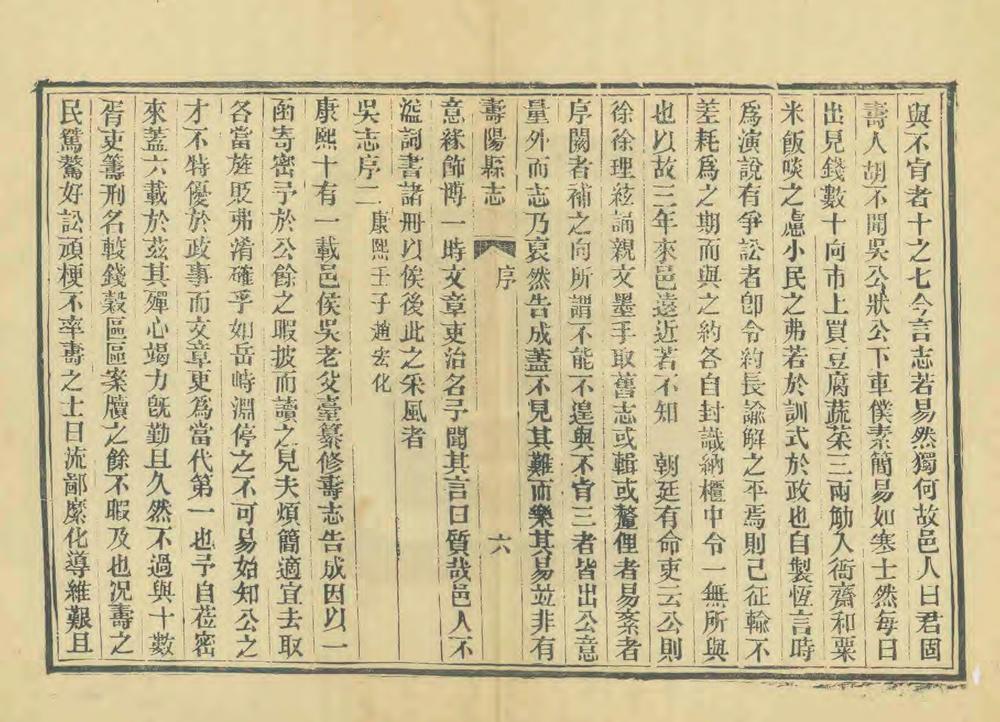 與不肯者十之七今言志若易然獨何故邑人曰君固
壽人胡不聞吳公狀公下車僕素簡易如寒士然每日
出見錢數十向市上買豆腐蔬菜三兩觔入衙齋和粟
米飯啖之慮小民之弗若於訓式於政也自製恆言時
為演說有爭訟者卽令約長諭解之平焉則已征輸不
差耗為之期而與之約各自封識納櫃中令一無所與
也以故三年來邑遠近若不知 朝廷有命吏云公則
徐徐理絃誦親文墨手取舊志或輯或釐俚者易紊者
序闕者補之向所謂不能不遑與不肯三者皆出公意
量外而志乃裒然告成蓋不見其難而樂其易並非有
壽陽縣志 序 六
意緣飾博一時文章吏治名予聞其言曰質哉邑人不
溢詞書諸冊以俟後此之采風者
吳志序二 康熙壬子 趙宏化
康熙十有一載邑侯吳老父臺纂修壽志告成因以一
函寄密予於公餘之暇披而讀之見夫煩簡適宜去取
各當旌貶弗淆確乎如岳峙淵停之不可易始知公之
才不特優於政事而文章更為當代第一也予自蒞密
來蓋六載於茲其殫心竭力旣勤且久然不過與十數
胥吏籌刑名較錢穀區區案牘之餘不暇及也況壽之
民鴛驁好訟頑梗不率壽之士日流鄙縻化導維艱且